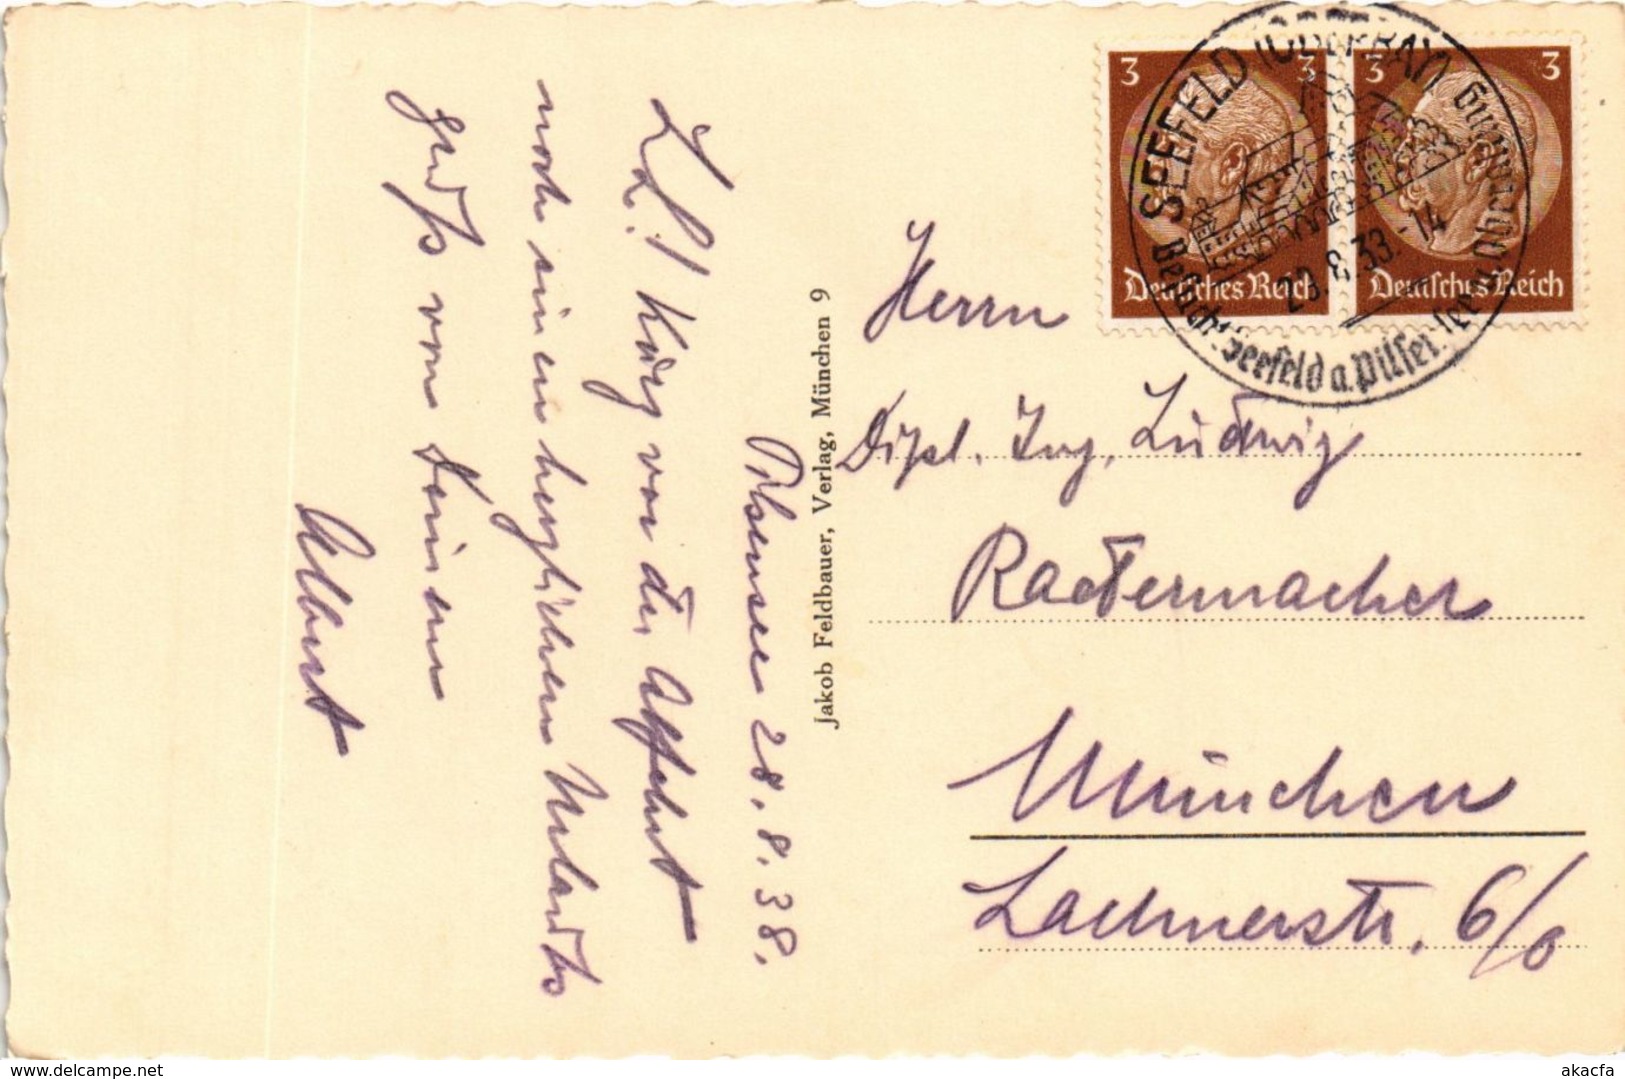 Pilsensee 28. 8. 38.
L. L.! Kurz vor der Abfahrt
noch einen herzlichen Urlaubs
gruß von Deinem
Albert
Jakob Feldbauer, Verlag, München 9
3 3
Deutsches Reich
3 3
Deutsches Reich
SEEFELD (OBERBAY)
29.8.38.-14
Besucht Seefeld a. Pilsensee
Herrn
Dipl. Ing. Ludwig
Radermacher
München
Lachnerstr. 6/0
akpool.de
akacfa